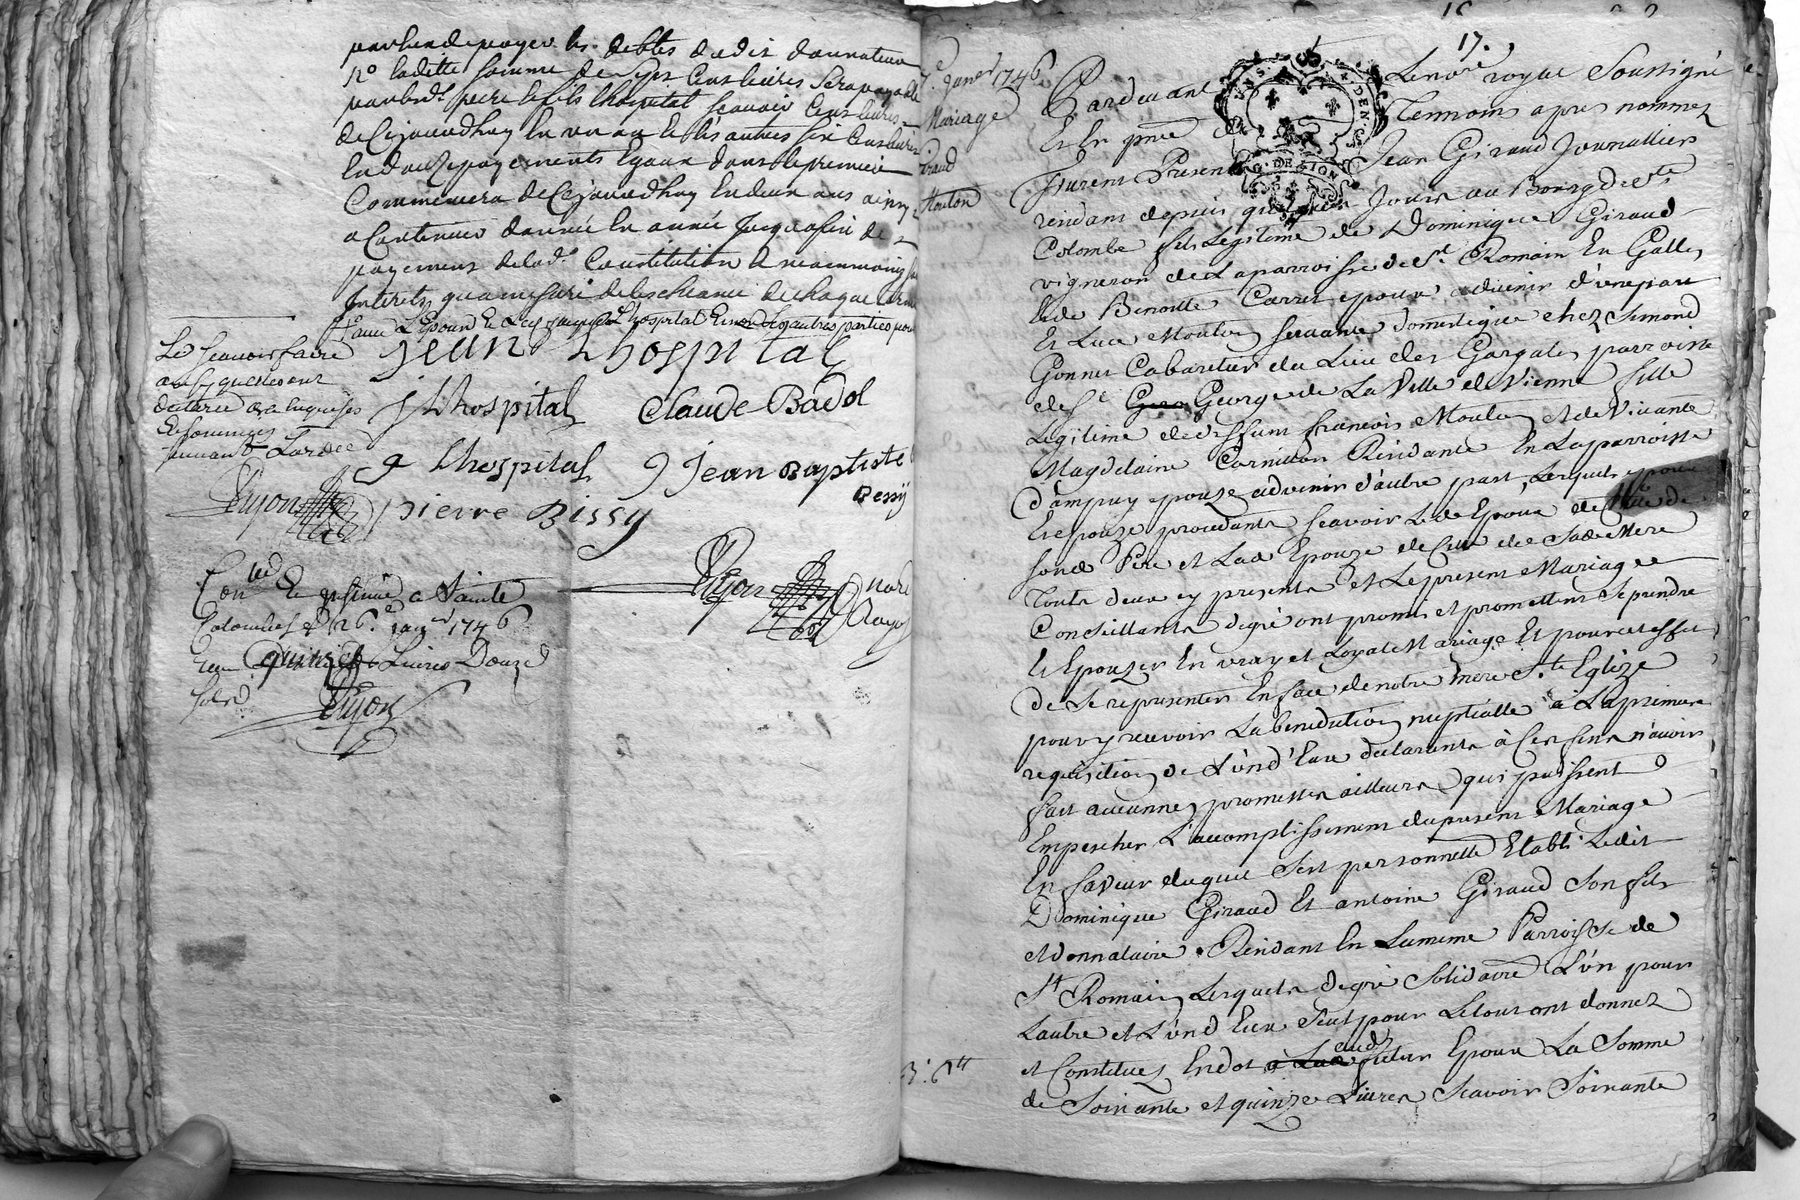 par hors de payer les debtes dudit donnateur
No. ladette somme de sept cens livres sera payable
par led. pere & fils lhospital scavoir cens livres
de cejourdhuy en un an & les autres six cens livres
en douze payements egaux dont le premier
commencera de cejourdhuy en deux ans ainsy
a continuer d'année en année jusqu'a fin de
payement de lad. constitution neammoins sans
interets qu'a mesure de l'escheance de chaque terme
Jean lhospital
J Lhospital Claude Badol
lhospital Jean Baptiste
Bessÿ
pierre Bissy
Dujon
Dujon no.re
Royal
Le scavoir faire
Con.lé & insinué a Sainte
Colombe le 26.e janv.r 1746
Reçu quinze Livres Douze
sols
Dujon
17.
7.e janv.r 1746
Mariage
Giraud
Mouton
Pardevant Le no.re royal Soussigné
Et en pnce de Temoins apres nommez
Furent Presents Jean Giraud Journallier
rendant depuis quelques Jours au Bourg de Ste
Colombe fils Legitime de Dominique Giraud
vigneron de La parroisse de St. Romain En Galles
& de Benoitte Carret epoux advenir d'une part
Et Luce Mouton servante domestique chez Simond
Gonnet Cabaretier du Lieu des Gargates parroisse
de St George de La Ville de Vienne fille
Legitime de deffunt françois Mouton et de Vivante
Magdelaine Cornillon Residante En La parroisse
d'ampuy epouze advenir d'autre part, Lesquels epoux
Et epouze procedants scavoir Led. Epoux de
Sond. Pere et Lad. Epouze de celle de Sade. Mere
touts deux cy presents et Le present Mariage
Conseillants degré ont promis et promettent se prendre
& Epouzer En vray et Loyal Mariage Et pour cet effet
de Se representer En face de notre mere Ste Eglize
pour y recevoir La benediction nuptialle à La premiere
requisition de L'un d'Eux declarants à ces fins n'avoir
fait aucunnes promesses ailleurs qui puissent
Empescher L'accomplissement du present Mariage
En faveur duquel s'est personnelle Etabli Ledit
Dominique Giraud Et antoine Giraud Son fils
et donnataire Residant En La meme Parroisse de
St Romain, Lesquels degré Solidaire L'un pour
L'autre et L'un d'Eux Seul pour Le tout ont donnez
et Constituez En dot aud. futur Epoux La Somme
de Soixante et quinze Livres Scavoir Soixante